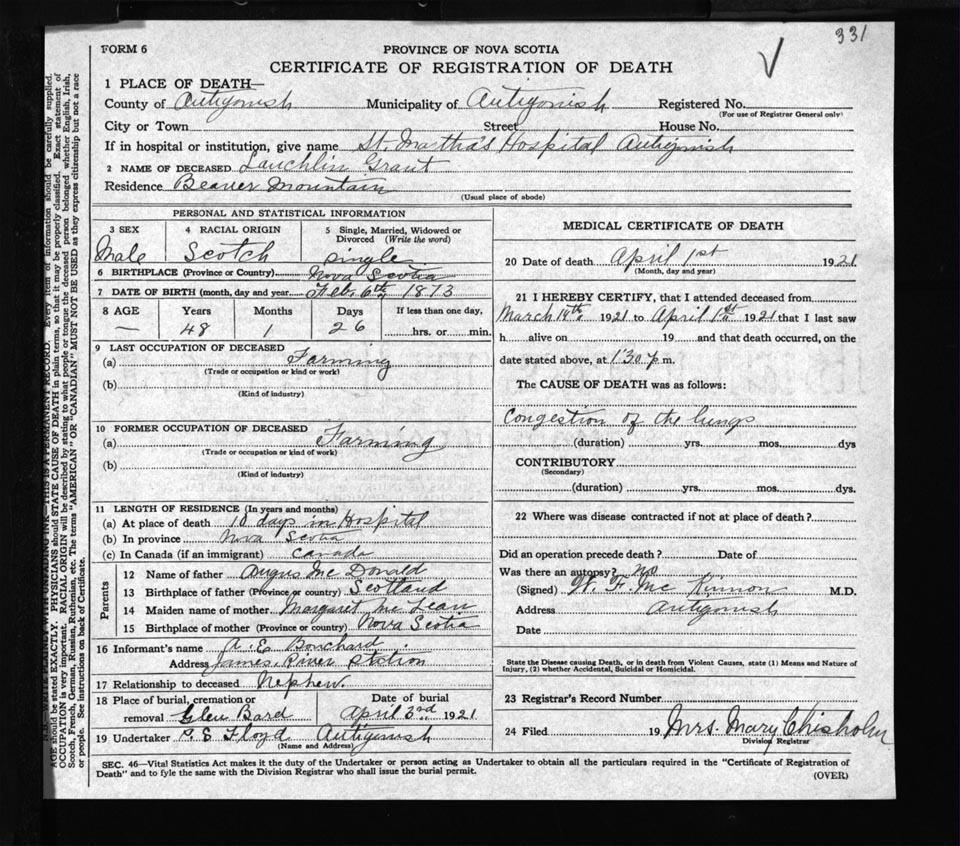 331
FORM 6
PROVINCE OF NOVA SCOTIA
CERTIFICATE OF REGISTRATION OF DEATH
1 PLACE OF DEATH—
County of Antigonish Municipality of Antigonish Registered No.
(For use of Registrar General only)
City or Town Street House No.
If in hospital or institution, give name St. Martha's Hospital Antigonish
2 NAME OF DECEASED Lauchlin Grant
Residence Beaver Mountain
(Usual place of abode)
PERSONAL AND STATISTICAL INFORMATION
3 SEX 4 RACIAL ORIGIN 5 Single, Married, Widowed or
Divorced (Write the word)
Male Scotch Single
6 BIRTHPLACE (Province or Country) Nova Scotia
7 DATE OF BIRTH (month, day and year) Feb. 6th 1873
8 AGE Years Months Days If less than one day,
— 48 1 26 hrs. or min.
9 LAST OCCUPATION OF DECEASED
(a) Farming
(Trade or occupation or kind or work)
(b)
(Kind of industry)
10 FORMER OCCUPATION OF DECEASED
(a) Farming
(Trade or occupation or kind of work)
(b)
(Kind of industry)
11 LENGTH OF RESIDENCE (In years and months)
(a) At place of death 10 days in Hospital
(b) In province Nova Scotia
(c) In Canada (if an immigrant) Canada
Parents
12 Name of father Angus Mc Donald
13 Birthplace of father (Province or country) Scotland
14 Maiden name of mother Margaret Mc Lean
15 Birthplace of mother (Province or country) Nova Scotia
16 Informant's name A. E. Bouchard
Address James River Station
17 Relationship to deceased Nephew.
18 Place of burial, cremation or Date of burial
removal Glen Bard April 3rd 1921
19 Undertaker P. S. Floyd Antigonish
(Name and Address)
MEDICAL CERTIFICATE OF DEATH
20 Date of death April 1st 1921
(Month, day and year)
21 I HEREBY CERTIFY, that I attended deceased from
March 14th 1921 to April 1st 1921 that I last saw
h alive on 19 and that death occurred, on the
date stated above, at 1.30 p m.
The CAUSE OF DEATH was as follows:
Congestion of the lungs
(duration) yrs. mos. dys
CONTRIBUTORY
(Secondary)
(duration) yrs. mos. dys.
22 Where was disease contracted if not at place of death?
Did an operation precede death? Date of
Was there an autopsy? No
(Signed) W. F. Mc Kinnon M.D.
Address Antigonish
Date
State the Disease causing Death, or in death from Violent Causes, state (1) Means and Nature of
Injury, (2) whether Accidental, Suicidal or Homicidal.
23 Registrar's Record Number
24 Filed 19 Mrs. Mary Chisholm
Division Registrar
SEC. 46—Vital Statistics Act makes it the duty of the Undertaker or person acting as Undertaker to obtain all the particulars required in the "Certificate of Registration of
Death" and to fyle the same with the Division Registrar who shall issue the burial permit.
(OVER)
THIS IS A PERMANENT RECORD. Every item of information should be carefully supplied.
AGE should be stated EXACTLY. PHYSICIANS should STATE CAUSE OF DEATH in plain terms, so that it may be properly classified. Exact statement of
OCCUPATION is very important. RACIAL ORIGIN will be described by stating to what people or tongue the deceased person belonged whether English, Irish,
Scotch, French, German, Russian, Ruthenian, etc. The terms "AMERICAN" OR "CANADIAN" MUST NOT BE USED as they express citizenship but not a race
or people. See instructions on back of Certificate.